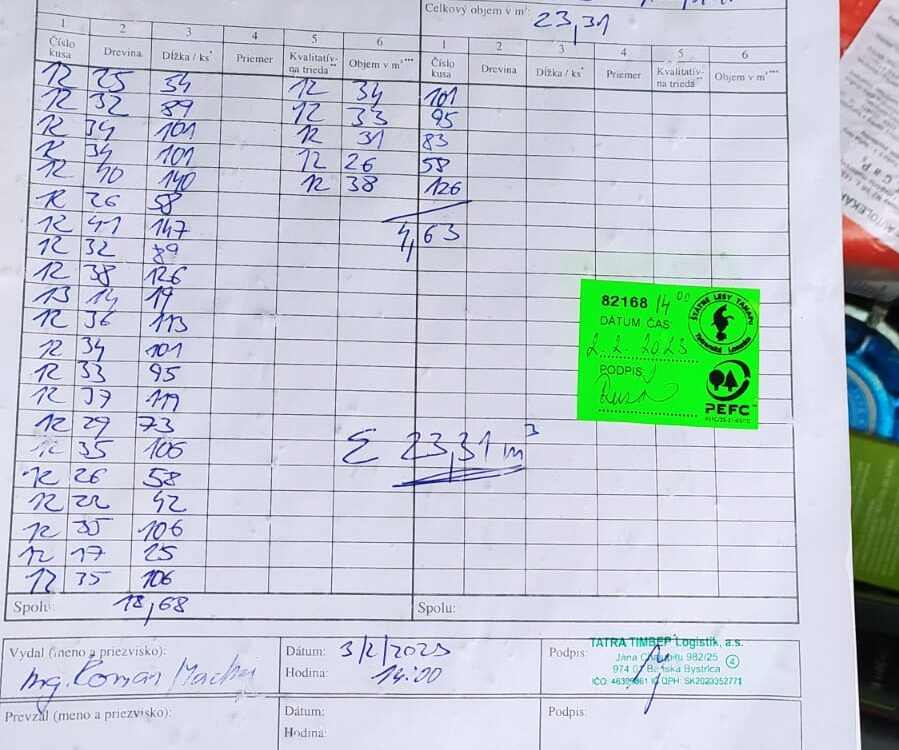 Celkový objem v m³: 23,31
1 2 3 4 5 6 1 2 3 4 5 6
Číslo kusa Drevina Dĺžka / ks* Priemer Kvalitatív-na trieda** Objem v m³*** Číslo kusa Drevina Dĺžka / ks* Priemer Kvalitatív-na trieda** Objem v m³***
12 25 54 12 34 101
12 32 89 12 33 95
12 34 101 12 31 83
12 34 101 12 26 58
12 40 140 12 38 126
12 26 58
12 41 147 4,63
12 32 89
12 38 126
13 14 17
12 36 113
12 34 101
12 33 95
12 37 119
12 29 73
12 35 106
12 26 58
12 22 42
12 35 106
12 17 25
12 35 106
Σ 23,31 m³
82168 14 00
DÁTUM ČAS
2. 2. 2023
PODPIS
ŠTÁTNE LESY TANAPU
Tatranská Lomnica
PEFC
Spolu: 18,68 Spolu:
Vydal (meno a priezvisko): Dátum: 3/2/2023 Podpis:
Ing. Roman Hodina: 14:00
TATRA TIMBER Logistik, a.s.
982/25
974 01 Banská Bystrica
4
DPH: SK2023352771
Prevzal (meno a priezvisko): Dátum: Podpis:
Hodina: